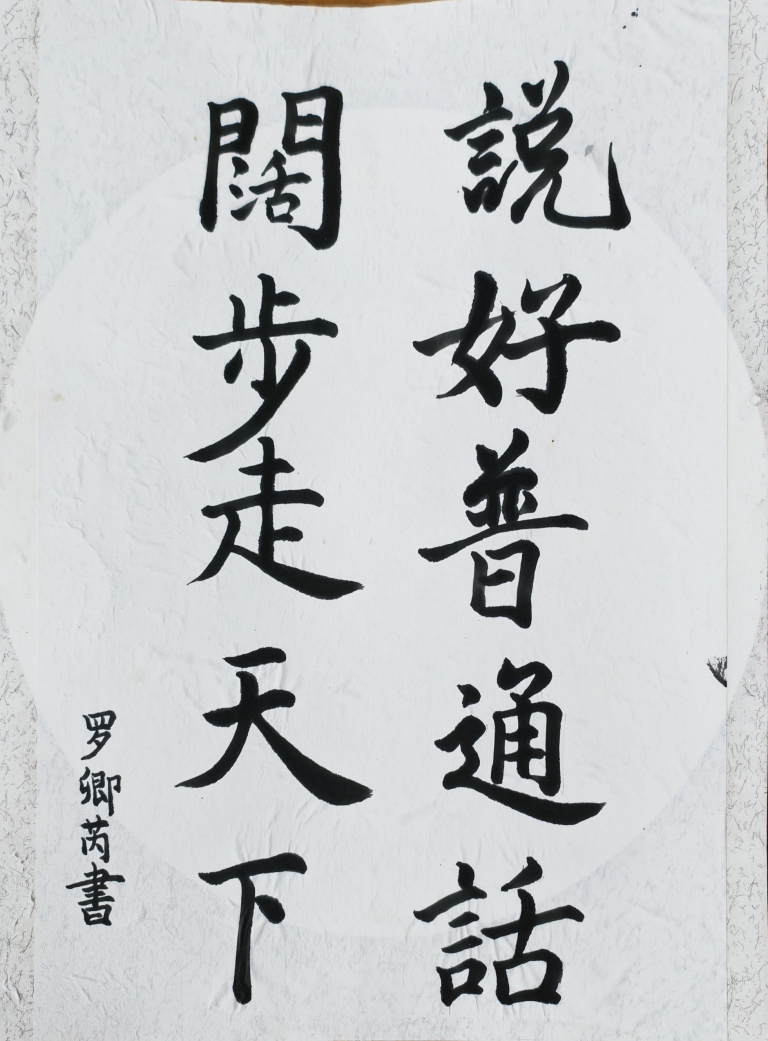 說好普通話
闊步走天下
罗卿芮書